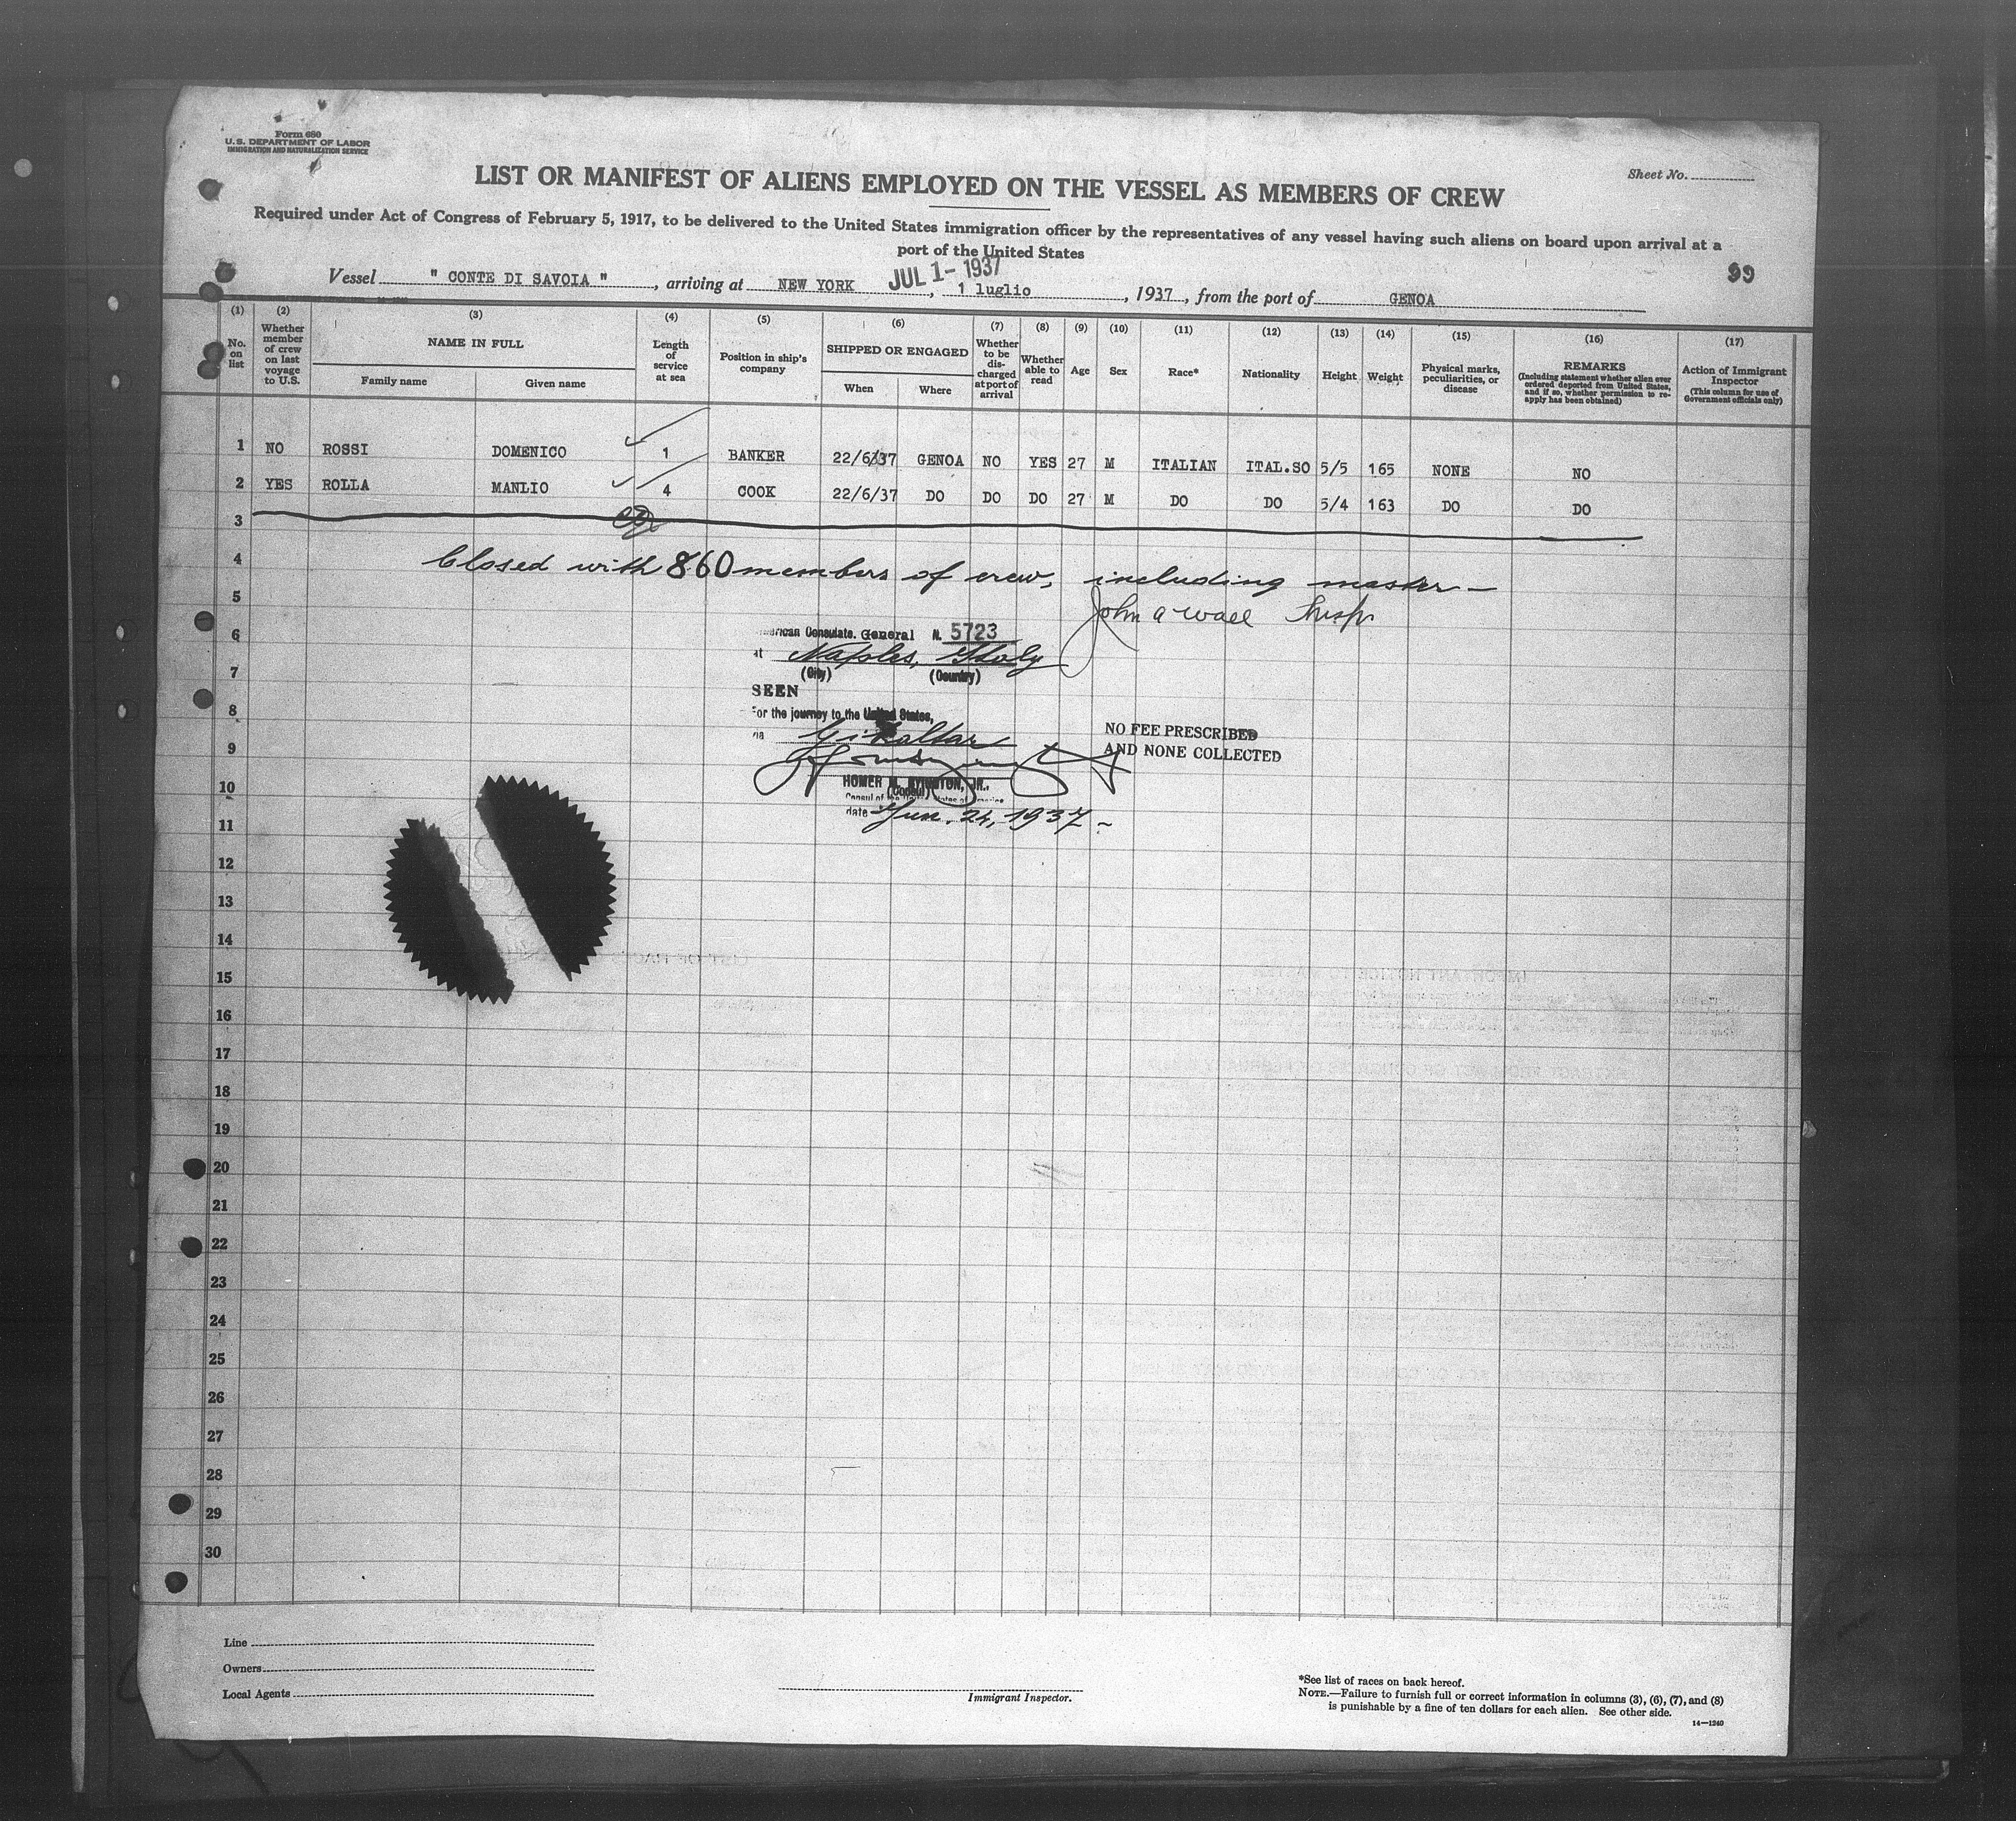 Form 680
U.S. DEPARTMENT OF LABOR
IMMIGRATION AND NATURALIZATION SERVICE
Sheet No.
LIST OR MANIFEST OF ALIENS EMPLOYED ON THE VESSEL AS MEMBERS OF CREW
Required under Act of Congress of February 5, 1917, to be delivered to the United States immigration officer by the representatives of any vessel having such aliens on board upon arrival at a
port of the United States
99
JUL 1- 1937
Vessel " CONTE DI SAVOIA ", arriving at NEW YORK, 1 luglio, 1937, from the port of GENOA
(1) (2) (3) (4) (5) (6) (7) (8) (9) (10) (11) (12) (13) (14) (15) (16) (17)
No. on list
Whether member of crew on last voyage to U.S.
NAME IN FULL
Family name
Given name
Length of service at sea
Position in ship's company
SHIPPED OR ENGAGED
When
Where
Whether to be discharged at port of arrival
Whether able to read
Age
Sex
Race*
Nationality
Height
Weight
Physical marks, peculiarities, or disease
REMARKS
(Including statement whether alien ever ordered deported from United States, and if so, whether permission to re-apply has been obtained)
Action of Immigrant Inspector
(This column for use of Government officials only)
1 NO ROSSI DOMENICO 1 BANKER 22/6/37 GENOA NO YES 27 M ITALIAN ITAL.SO 5/5 165 NONE NO
2 YES ROLLA MANLIO 4 COOK 22/6/37 DO DO DO 27 M DO DO 5/4 163 DO DO
3
4
Closed with 860 members of crew, including master —
5
John A Wall Insp
6
American Consulate. General N. 5723
at Naples, Italy
7
(City) (Country)
SEEN
8
For the journey to the United States,
NO FEE PRESCRIBED
AND NONE COLLECTED
9
via Gibraltar
10
HOMER M. BYINGTON, JR.,
(Consul)
Consul of the United States of America
date Jun. 24, 1937 -
11
12
13
14
15
16
17
18
19
20
21
22
23
24
25
26
27
28
29
30
Line
Owners
Local Agents
Immigrant Inspector.
*See list of races on back hereof.
NOTE.—Failure to furnish full or correct information in columns (3), (6), (7), and (8)
is punishable by a fine of ten dollars for each alien. See other side.
14—1240